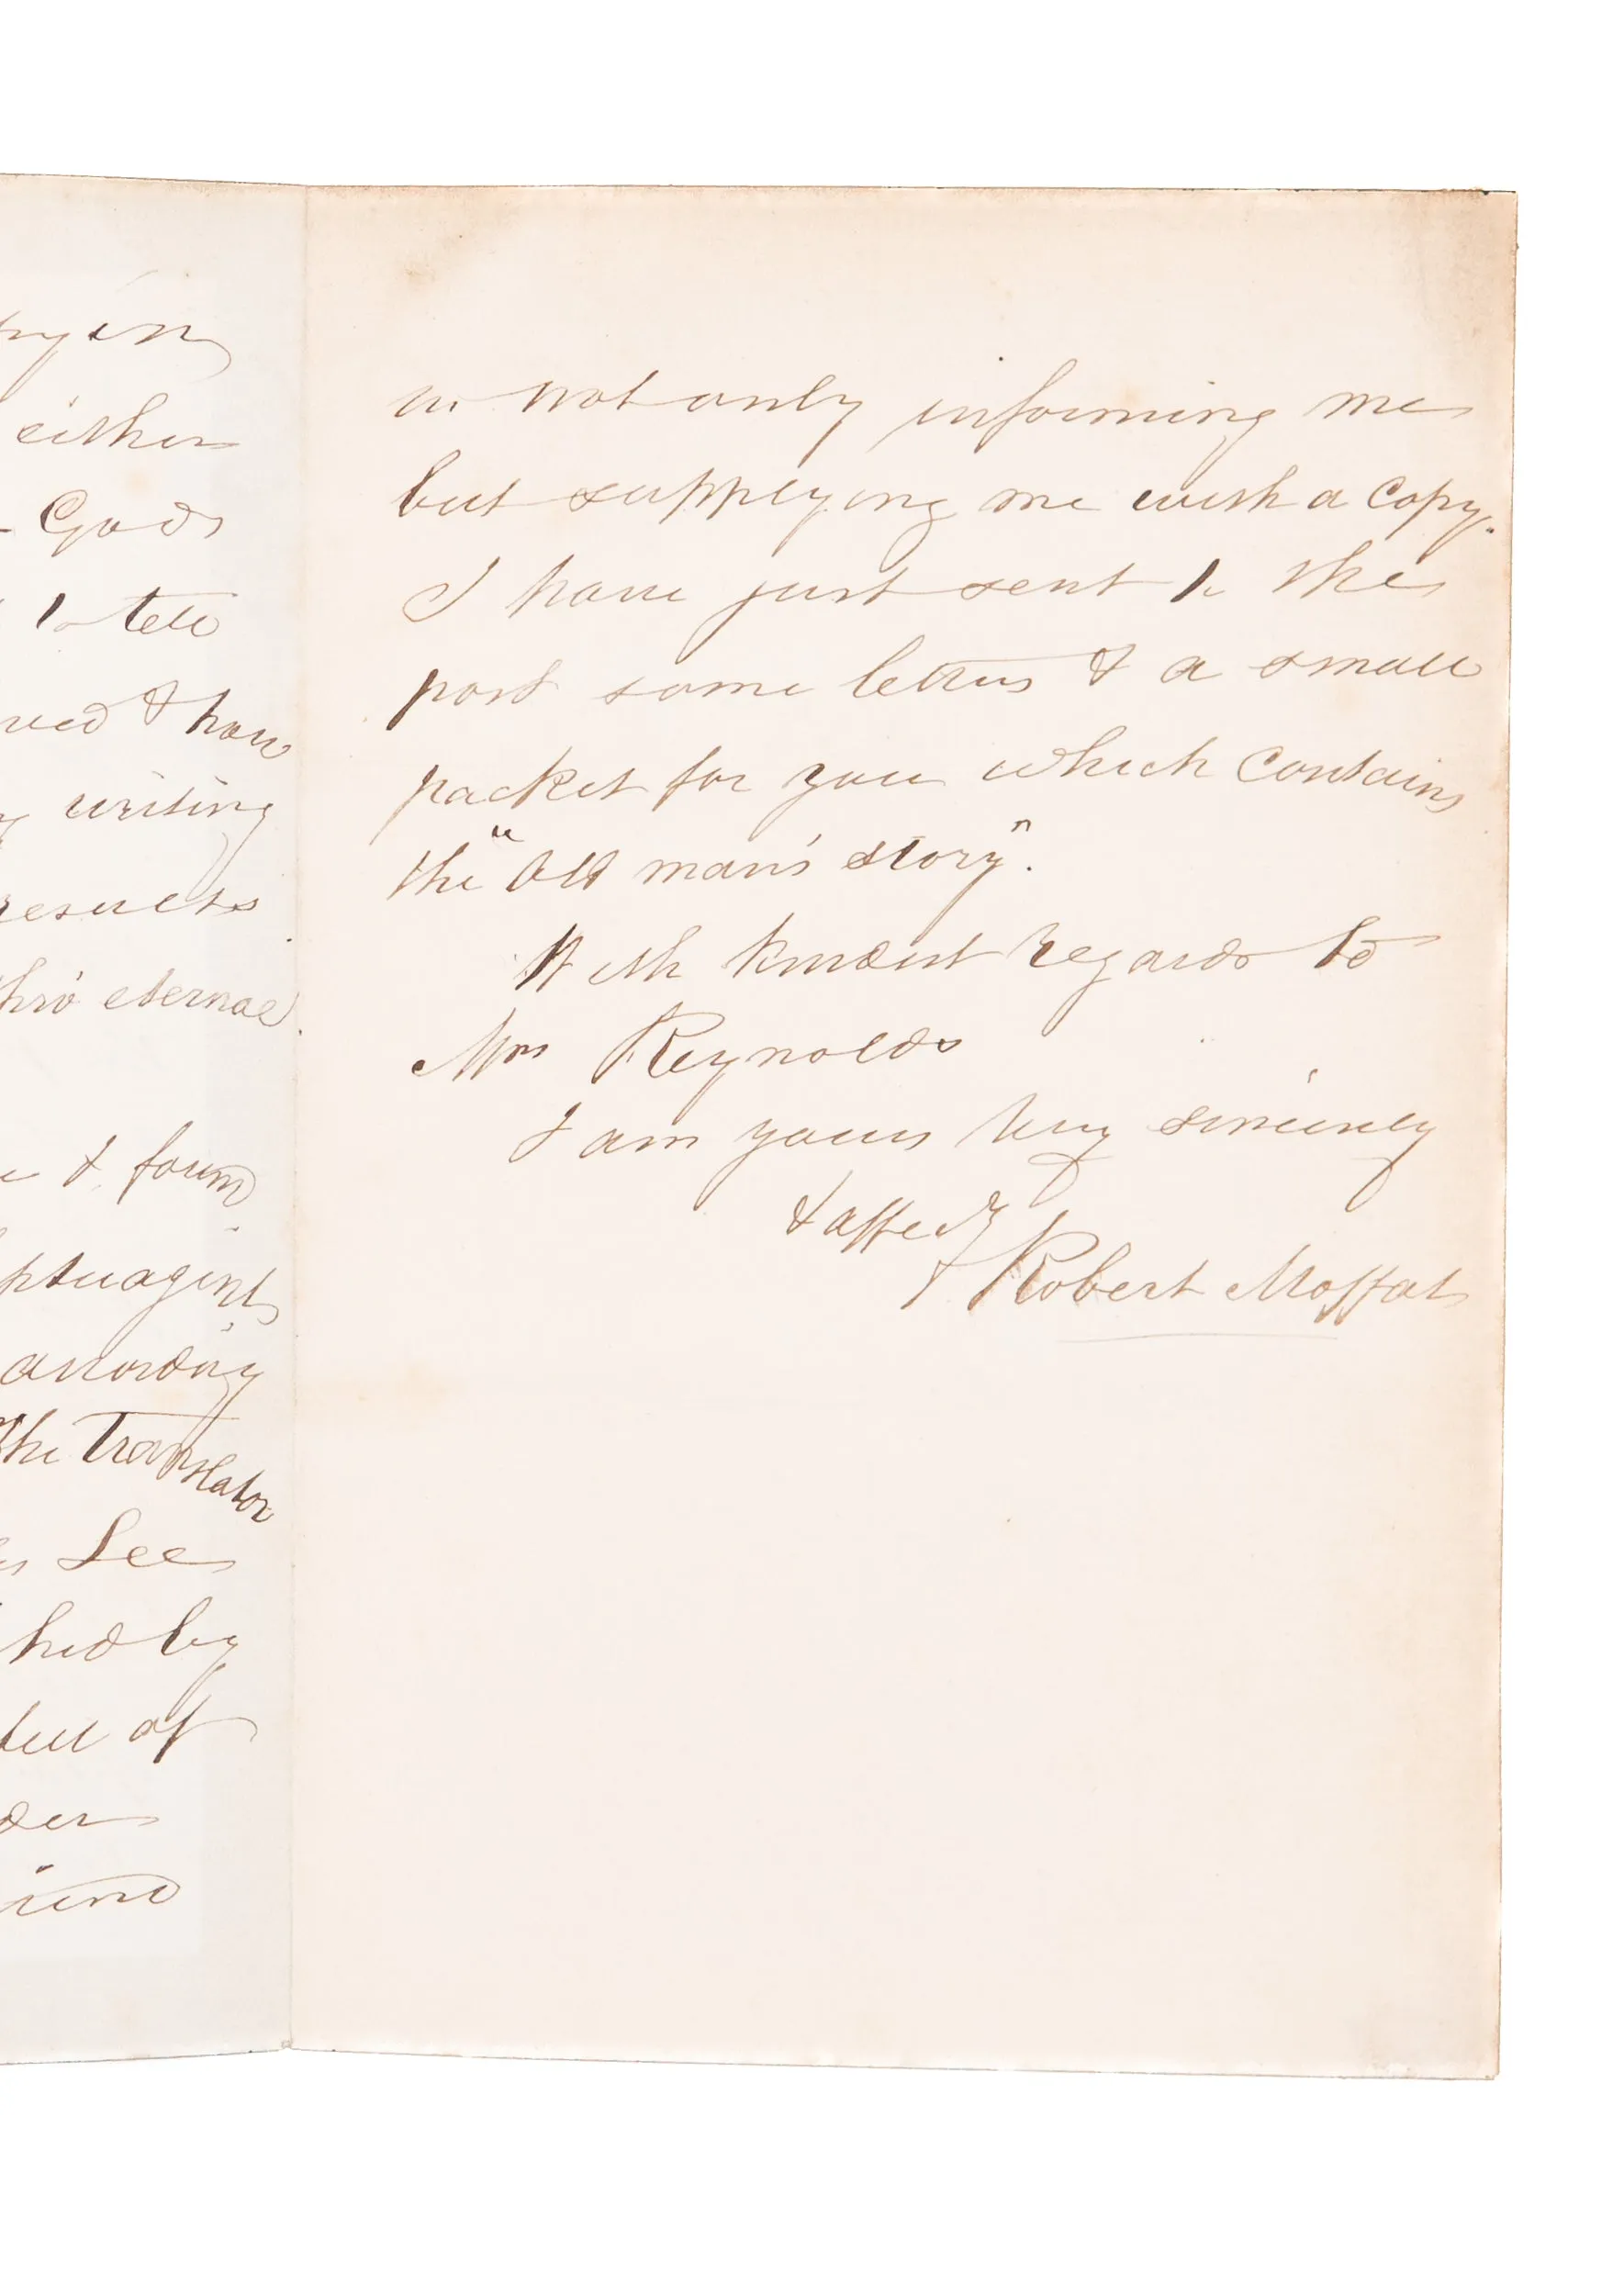 either
Gods
to tell
& how
writing
results
thro' eternal
& found
according
the Translator
Lee
by
full of
in not only informing me
but supplying me with a copy.
I have just sent to the
post some letters & a small
packet for you which contains
the "Old man's story".
With kindest regards to
Mrs Reynolds
I am yours very sincerely
& affecly
Robert Moffat